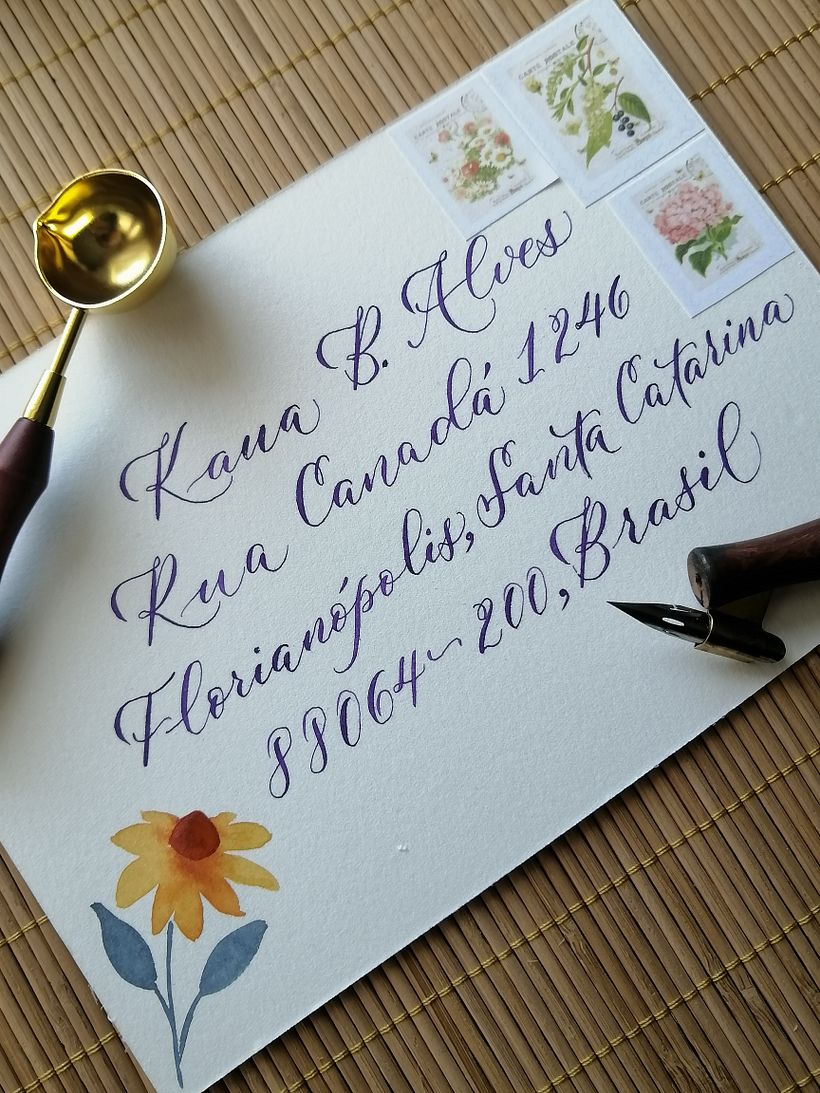 CARTE POSTALE
CARTE POSTALE
CARTE POSTALE
Kaua B. Alves
Rua Canadá 1246
Florianópolis, Santa Catarina
88064-200, Brasil